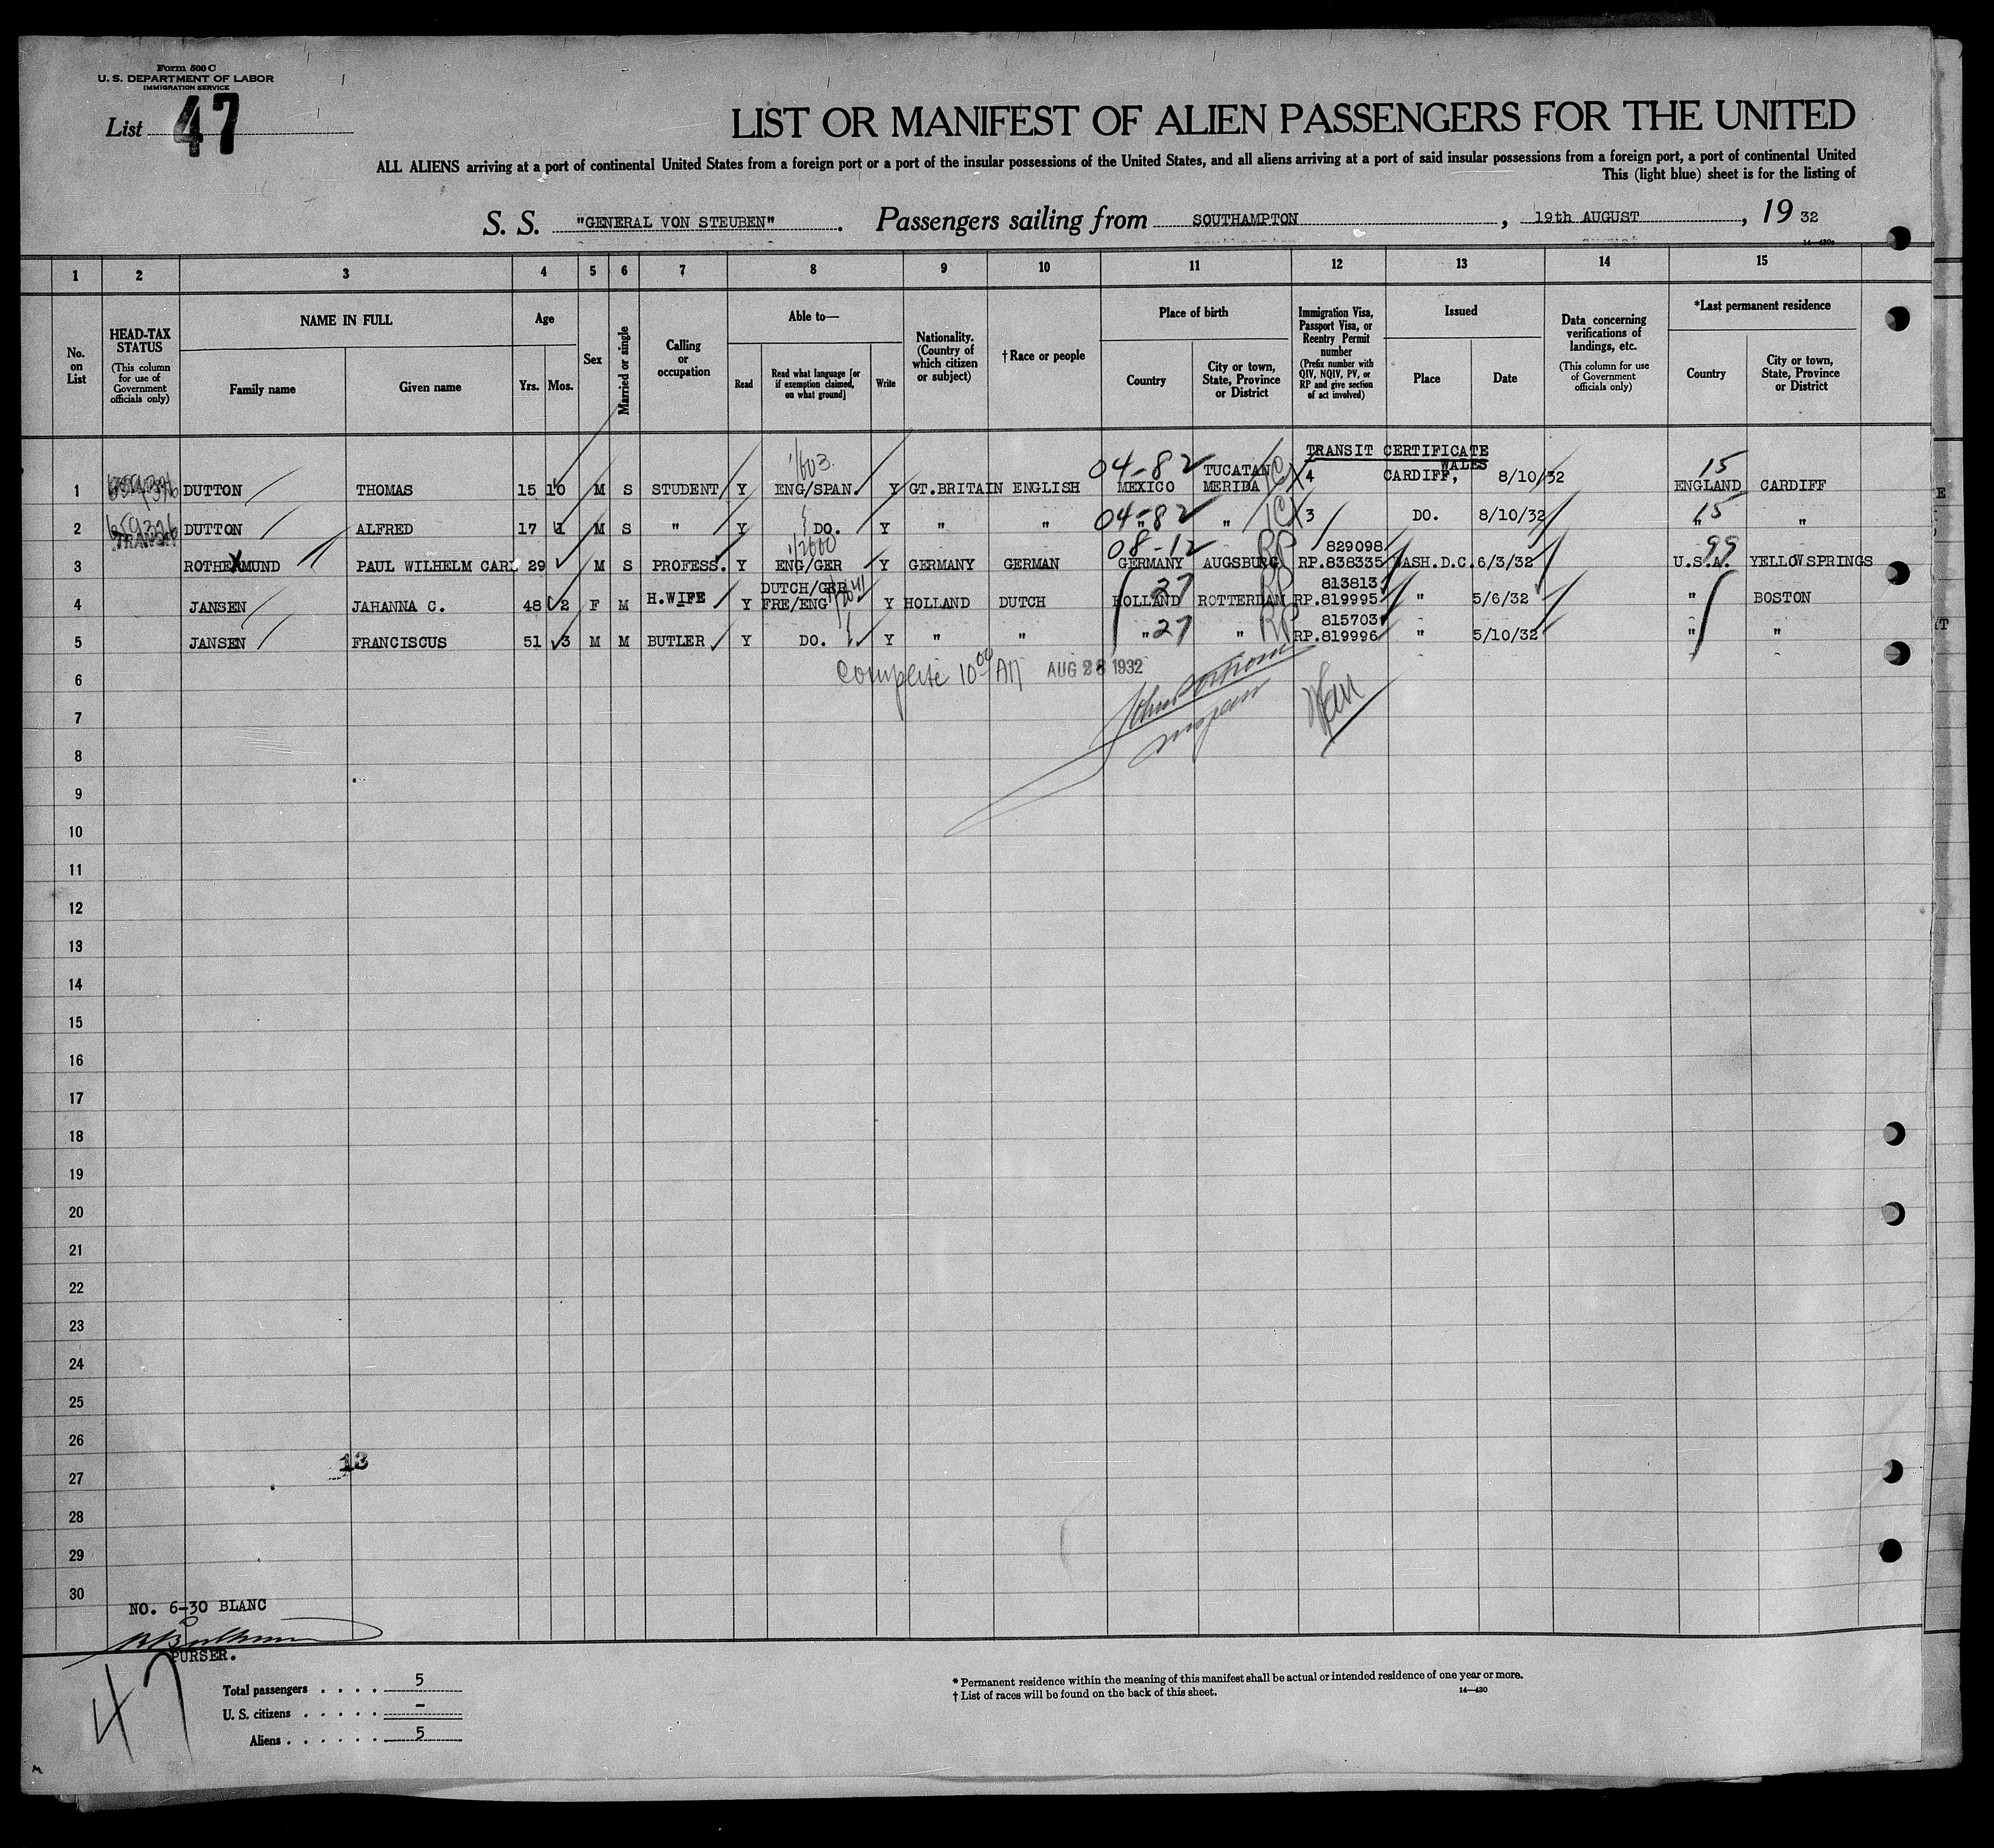 Form 500 C
U. S. DEPARTMENT OF LABOR
IMMIGRATION SERVICE
List 47
LIST OR MANIFEST OF ALIEN PASSENGERS FOR THE UNITED
ALL ALIENS arriving at a port of continental United States from a foreign port or a port of the insular possessions of the United States, and all aliens arriving at a port of said insular possessions from a foreign port, a port of continental United
This (light blue) sheet is for the listing of
S. S. "GENERAL VON STEUBEN". Passengers sailing from SOUTHAMPTON, 19th AUGUST, 19 32
14-430a
1 2 3 4 5 6 7 8 9 10 11 12 13 14 15
No. on List
HEAD-TAX STATUS (This column for use of Government officials only)
NAME IN FULL
Family name
Given name
Age
Yrs. Mos.
Sex
Married or single
Calling or occupation
Able to—
Read
Read what language [or if exemption claimed, on what ground]
Write
Nationality. (Country of which citizen or subject)
† Race or people
Place of birth
Country
City or town, State, Province or District
Immigration Visa, Passport Visa, or Reentry Permit number (Prefix number with QIV, NQIV, PV, or RP and give section of act involved)
Issued
Place
Date
Data concerning verifications of landings, etc. (This column for use of Government officials only)
*Last permanent residence
Country
City or town, State, Province or District
TRANSIT CERTIFICATE
1603 04-82 TUCATAN WALES 15
1 DUTTON THOMAS 15 10 M S STUDENT Y ENG/SPAN. Y GT.BRITAIN ENGLISH MEXICO MERIDA 4 CARDIFF, 8/10/32 ENGLAND CARDIFF
04-82 15
2 659326 DUTTON ALFRED 17 1 M S " Y DO. Y " " " " 3 DO. 8/10/32 " "
TRANSIT 12600 08-12 RP 829098 99
3 ROTHERMUND PAUL WILHELM CARL 29 M S PROFESS. Y ENG/GER Y GERMANY GERMAN GERMANY AUGSBURG RP.838335 WASH.D.C. 6/3/32 U.S.A. YELLOWSPRINGS
DUTCH/GER 27 RP 813813
4 JANSEN JAHANNA C. 48 2 F M H.WIFE Y FRE/ENG Y HOLLAND DUTCH HOLLAND ROTTERDAM RP.819995 " 5/6/32 " BOSTON
27 RP 815703
5 JANSEN FRANCISCUS 51 3 M M BUTLER Y DO. Y " " " " RP.819996 " 5/10/32 " "
Complete 10 00 AM AUG 28 1932
6
7
8
9
10
11
12
13
14
15
16
17
18
19
20
21
22
23
24
25
26
13
27
28
29
30
NO. 6-30 BLANC
PURSER.
47
Total passengers . . . . 5
U. S. citizens . . . . . -
Aliens . . . . . . 5
* Permanent residence within the meaning of this manifest shall be actual or intended residence of one year or more.
† List of races will be found on the back of this sheet.
14—430